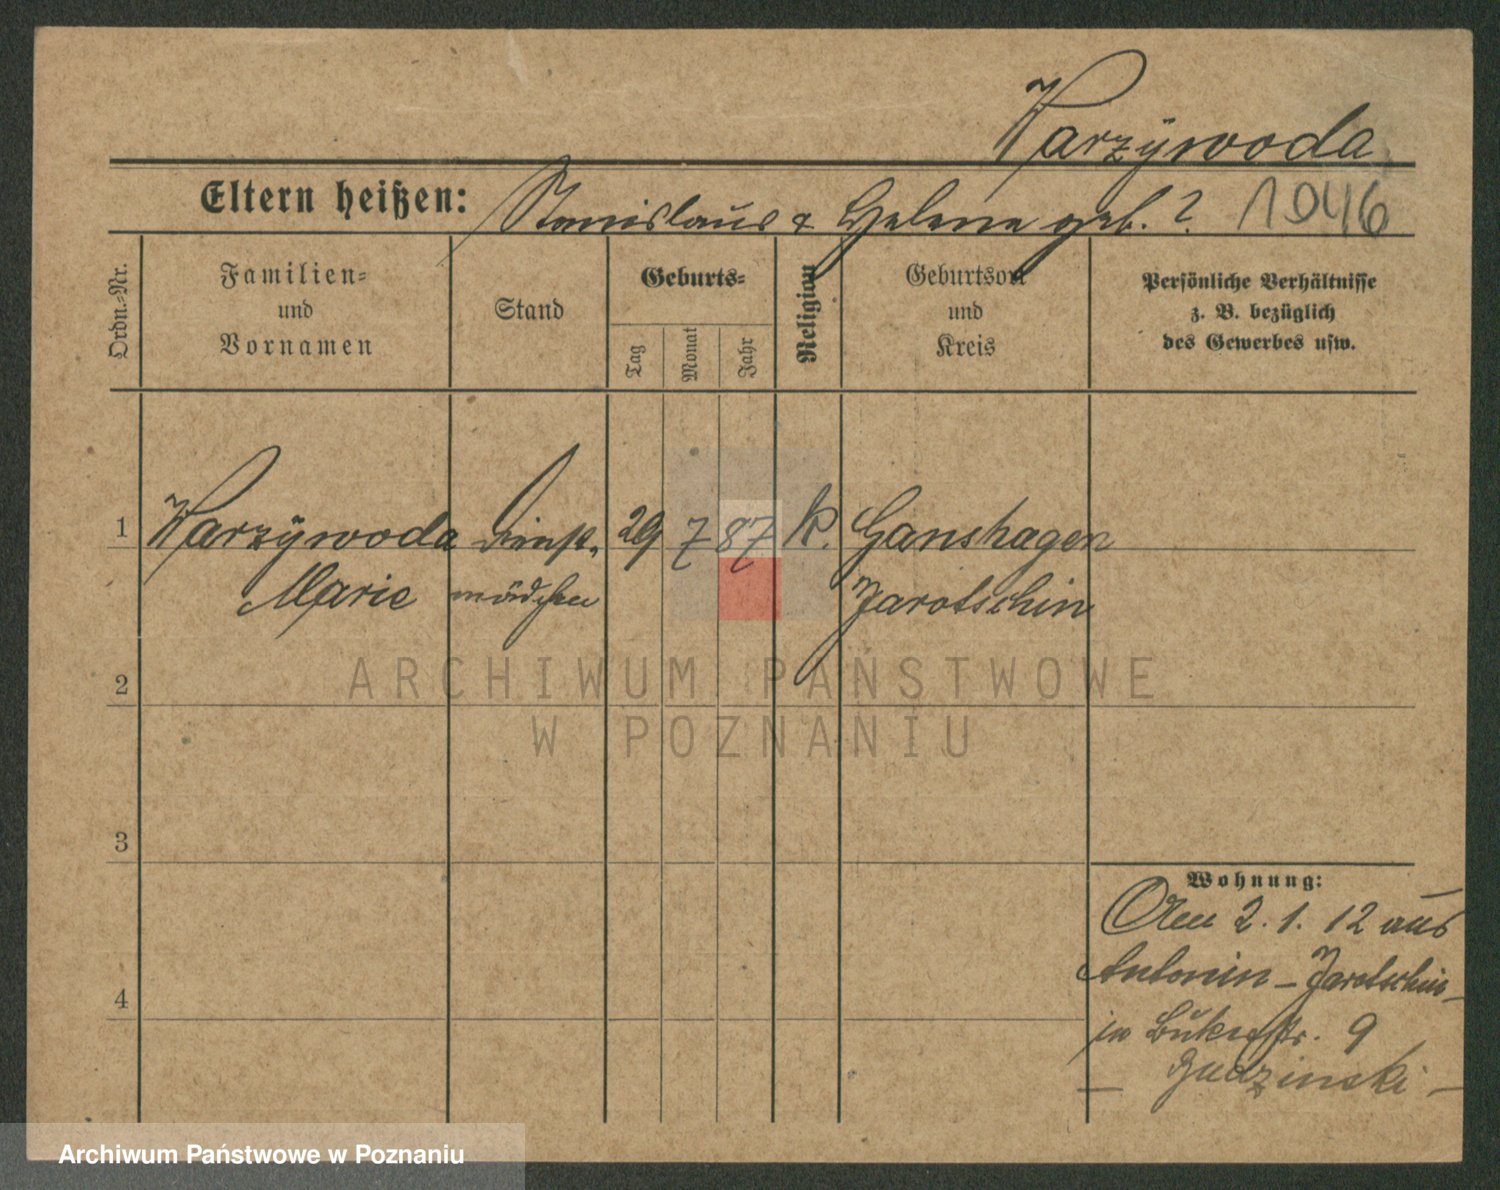 Karzÿwoda
Eltern heißen: Stanislaus & Helene geb. ? 1046
Ordn.-Nr.
Familien-
und
Vornamen
Stand
Geburts-
Tag
Monat
Jahr
Religion
Geburtsort
und
Kreis
Persönliche Verhältnisse
z. B. bezüglich
des Gewerbes usw.
1 Karzÿwoda Dienst- 29 7 87 k. Ganshagen
Marie mädchen Jarotschin
ARCHIWUM PAŃSTWOWE
W POZNANIU
2
3
4
Wohnung:
Am 2. 1. 12 aus
Antonin - Jarotschin
in Bukerstr. 9
- Budzinski -
Archiwum Państwowe w Poznaniu